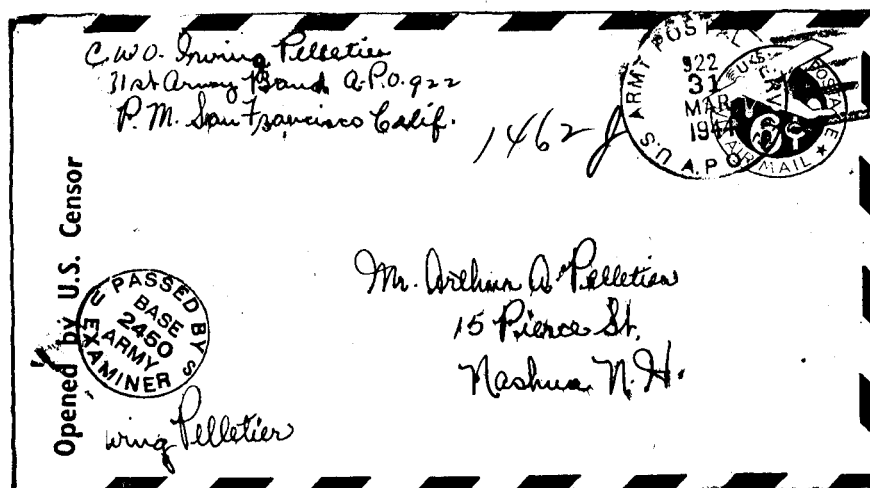 C.W.O. Irving Pelletier
31st Army Band A.P.O. 922
P.M. San Francisco Calif.
1462
U.S. ARMY POSTAL
A.P.O.
922
31
MAR
1944
U.S. POSTAGE
AIR MAIL
Opened by U.S. Censor
PASSED BY
U S
BASE
2450
ARMY
EXAMINER
Mr. Arthur A. Pelletier
15 Pierce St.
Nashua N.H.
Irving Pelletier